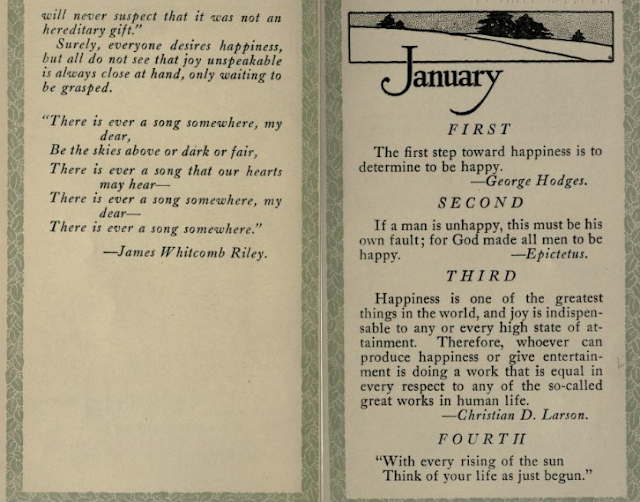 will never suspect that it was not an
hereditary gift."
Surely, everyone desires happiness,
but all do not see that joy unspeakable
is always close at hand, only waiting to
be grasped.
"There is ever a song somewhere, my
dear,
Be the skies above or dark or fair,
There is ever a song that our hearts
may hear—
There is ever a song somewhere, my
dear—
There is ever a song somewhere."
—James Whitcomb Riley.
January
FIRST
The first step toward happiness is to
determine to be happy.
—George Hodges.
SECOND
If a man is unhappy, this must be his
own fault; for God made all men to be
happy. —Epictetus.
THIRD
Happiness is one of the greatest
things in the world, and joy is indispen-
sable to any or every high state of at-
tainment. Therefore, whoever can
produce happiness or give entertain-
ment is doing a work that is equal in
every respect to any of the so-called
great works in human life.
—Christian D. Larson.
FOURTH
"With every rising of the sun
Think of your life as just begun."